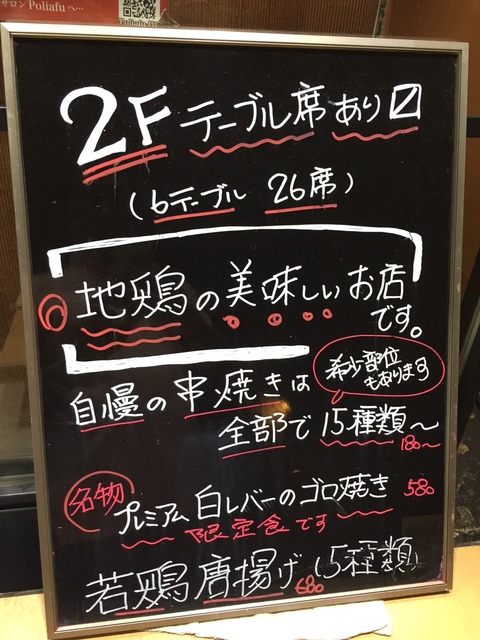 サロン Poliafuへ…
2F テーブル席あり〼
(6テーブル 26席)
地鶏の美味しいお店
です。
希少部位
もあります
自慢の串焼きは
全部で15種類〜
180〜
名物
プレミアム白レバーのゴロ焼き 580
限定食です
若鶏唐揚げ(5種類)
680